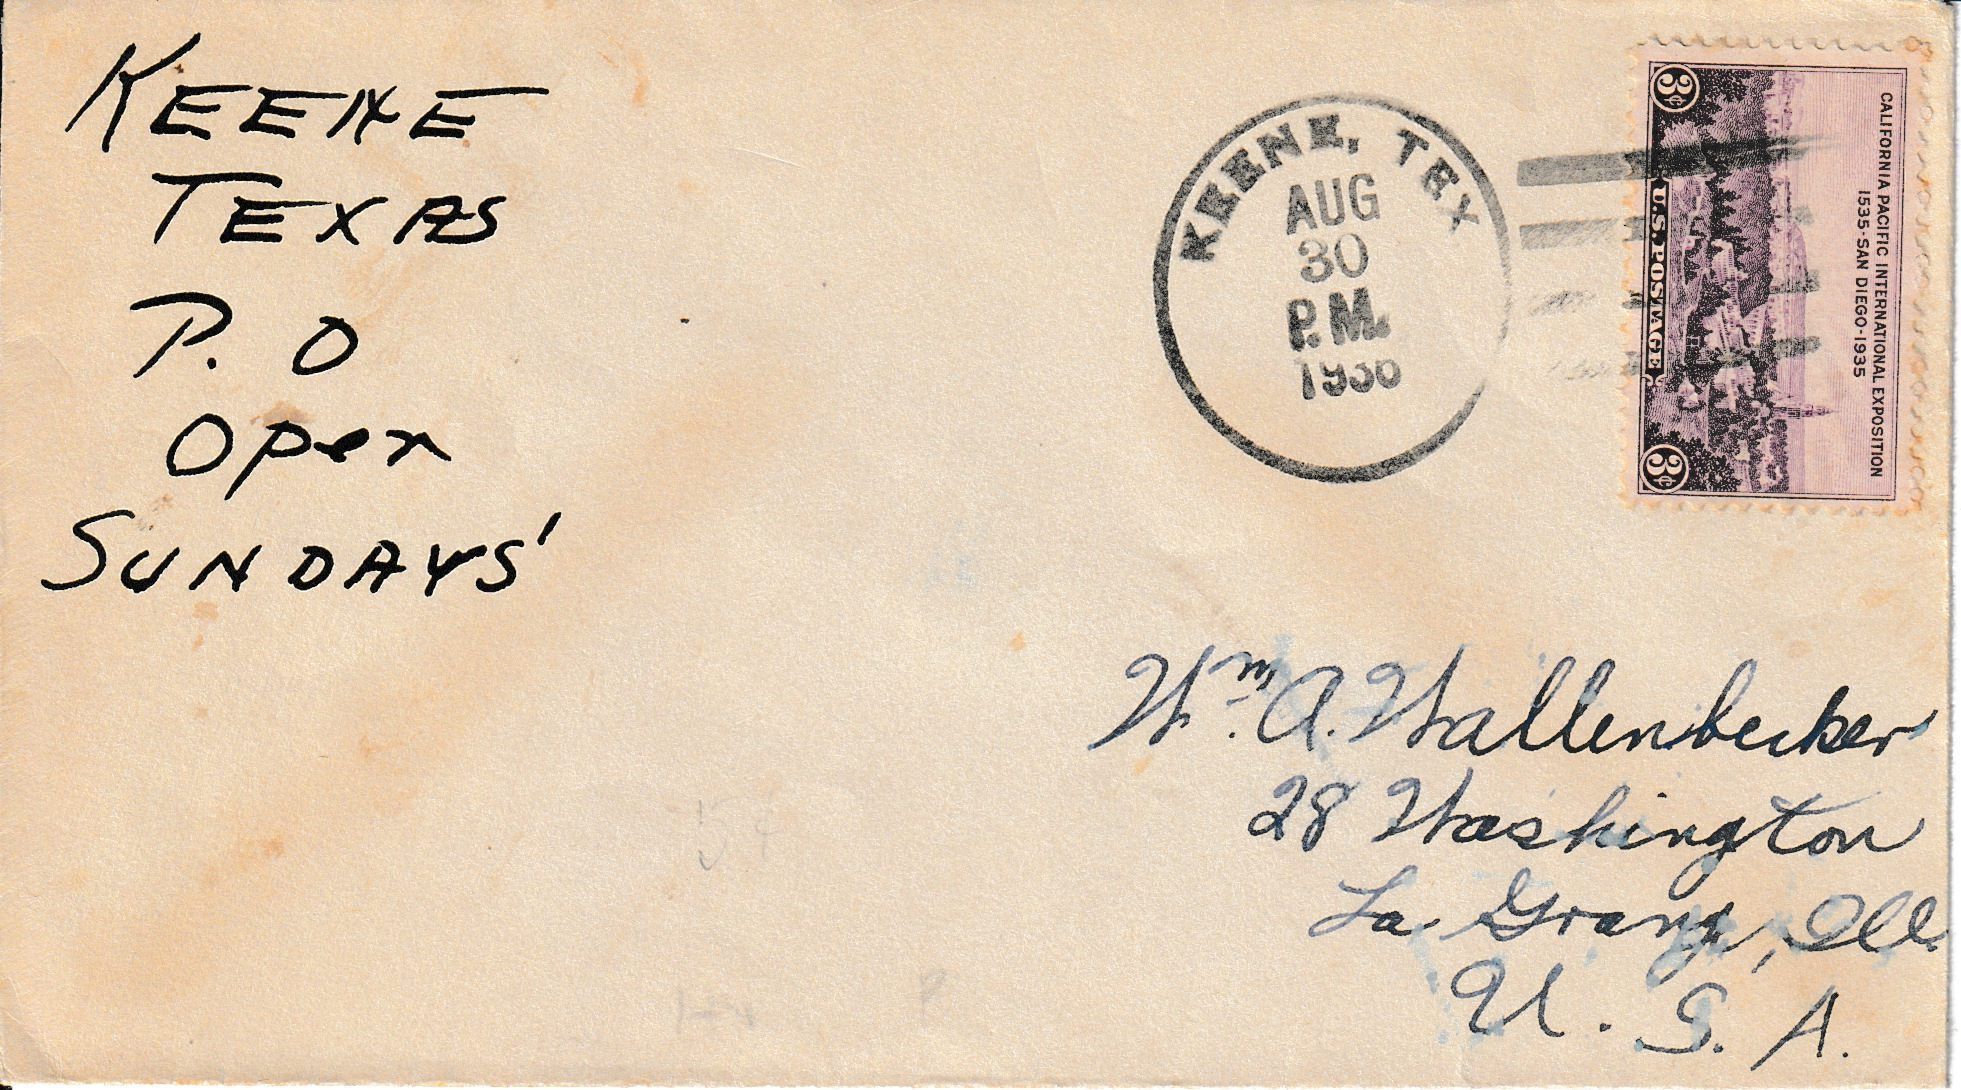 KEENE
TEXAS
P. O
Open
SUNDAYS'
KEENE, TEX
AUG
30
P.M.
1936
CALIFORNIA PACIFIC INTERNATIONAL EXPOSITION
1535-SAN DIEGO-1935
3¢ U.S. POSTAGE 3¢
Wm. A. Wallenbecker
28 Washington
La Grange, Ill.
U. S. A.